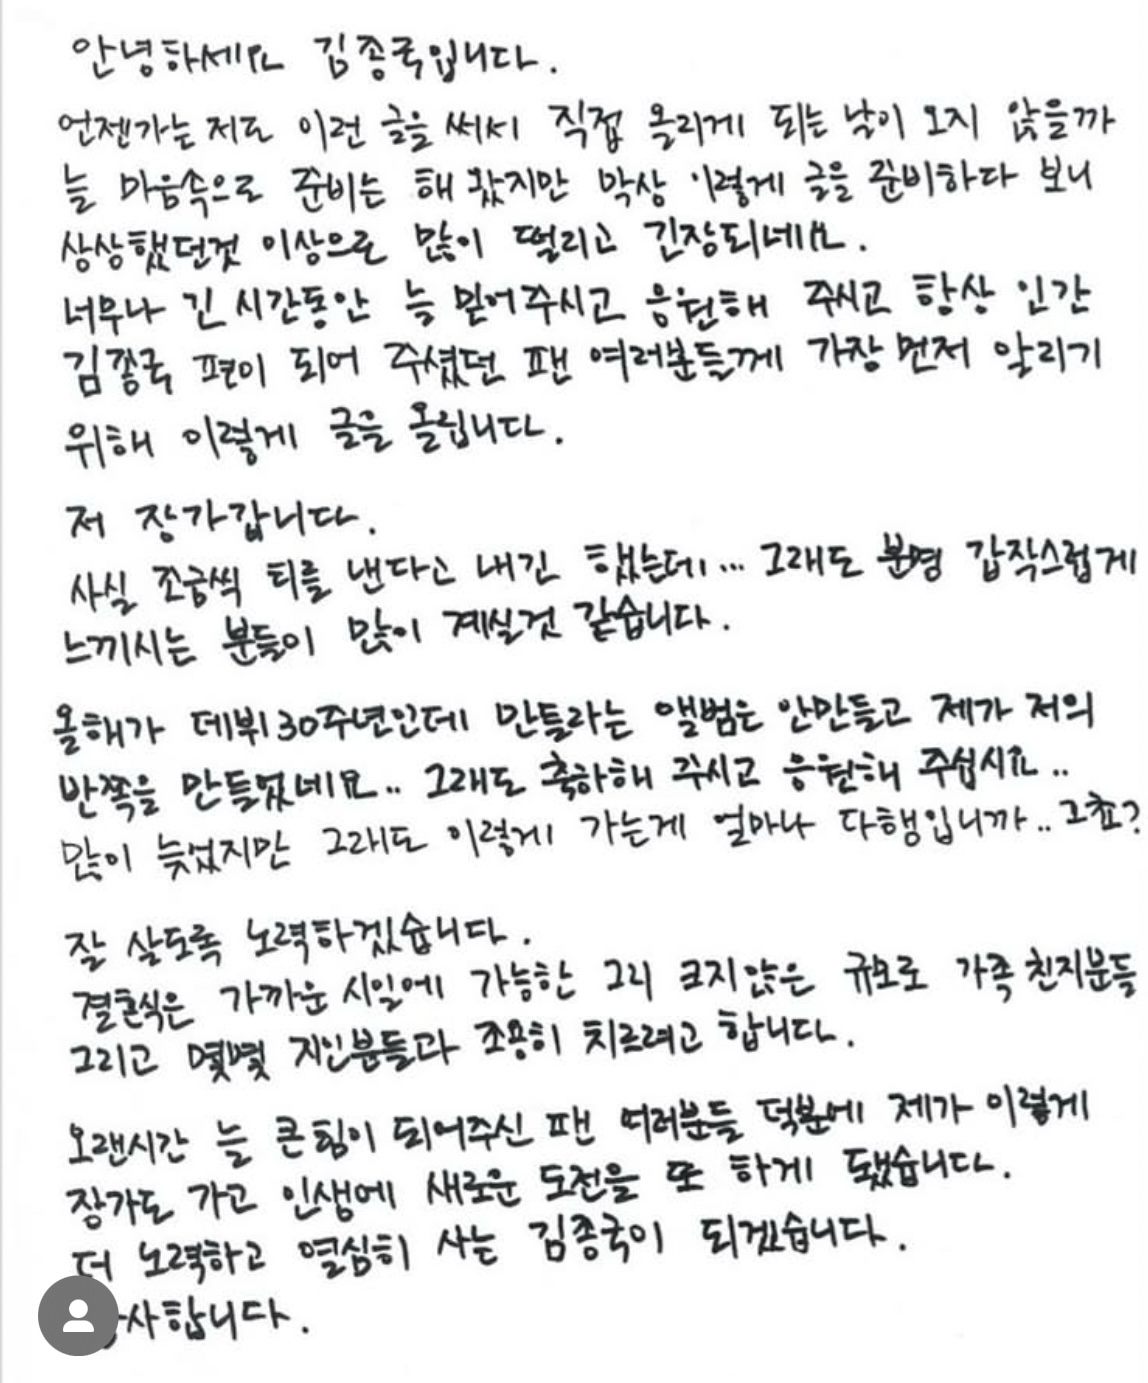 안녕하세요 김종국입니다.
언젠가는 저도 이런 글을 써서 직접 올리게 되는 날이 오지 않을까
늘 마음속으로 준비는 해 왔지만 막상 이렇게 글을 준비하다 보니
상상했던것 이상으로 많이 떨리고 긴장되네요.
너무나 긴 시간동안 늘 믿어주시고 응원해 주시고 항상 인간
김종국 편이 되어 주셨던 팬 여러분들께 가장 먼저 알리기
위해 이렇게 글을 올립니다.
저 장가갑니다.
사실 조금씩 티를 낸다고 내긴 했는데... 그래도 분명 갑작스럽게
느끼시는 분들이 많이 계실것 같습니다.
올해가 데뷔 30주년인데 만들라는 앨범은 안만들고 제가 저의
반쪽을 만들었네요.. 그래도 축하해 주시고 응원해 주십시요..
많이 늦었지만 그래도 이렇게 가는게 얼마나 다행입니까.. 그쵸?
잘 살도록 노력하겠습니다.
결혼식은 가까운 시일에 가능한 그리 크지않은 규모로 가족 친지분들
그리고 몇몇 지인분들과 조용히 치르려고 합니다.
오랜시간 늘 큰 힘이 되어주신 팬 여러분들 덕분에 제가 이렇게
장가도 가고 인생에 새로운 도전을 또 하게 됐습니다.
더 노력하고 열심히 사는 김종국이 되겠습니다.
사합니다.